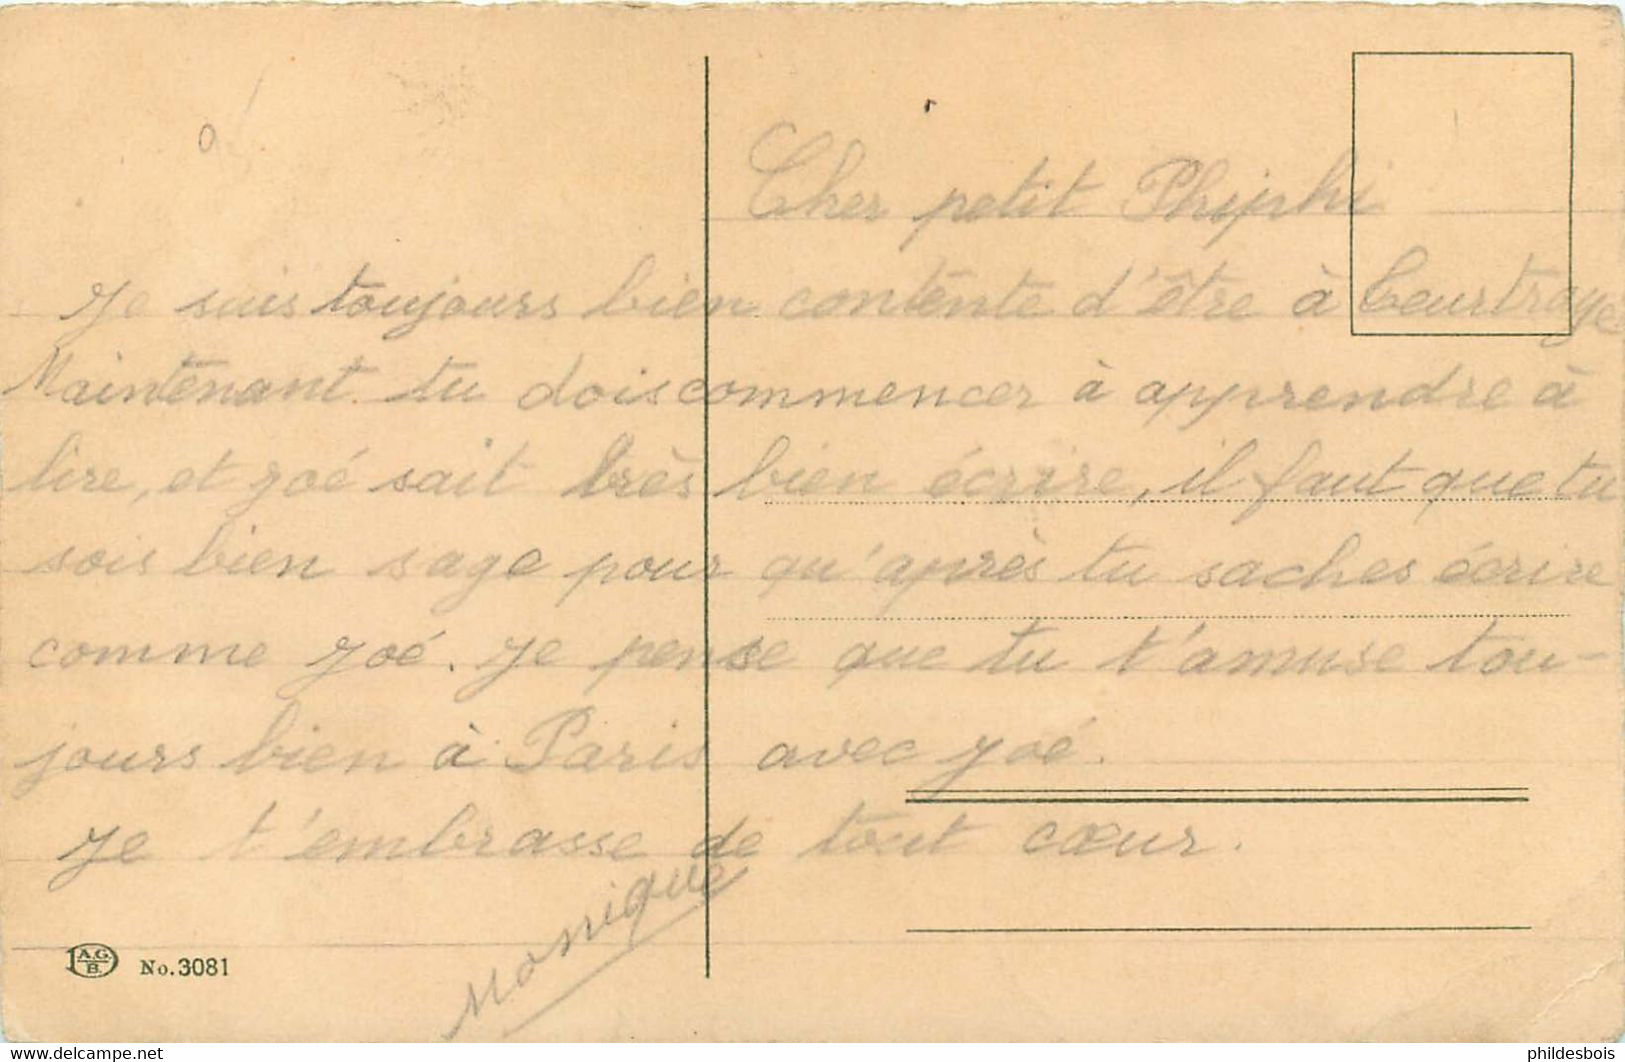 Cher petit Phiphi
Je suis toujours bien contente d'être à
Maintenant tu dois commencer à apprendre à
lire, et Zoé sait très bien écrire, il faut que tu
sois bien sage pour qu'après tu saches écrire
comme Zoé. Je pense que tu t'amuse tou-
jours bien à Paris avec Zoé.
Je t'embrasse de tout cœur.
Monique
A.G.
B.
No. 3081
https://www.delcampe.net
phildesbois